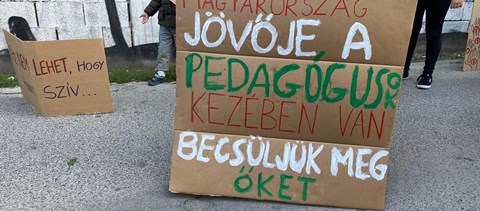 LEHET, HOGY
SZÍV...
MAGYARORSZÁG
JÖVŐJE A
PEDAGÓGUSOK
KEZÉBEN VAN
BECSÜLJÜK MEG
ŐKET